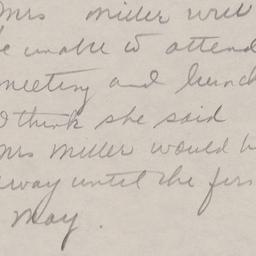 Mrs Miller will
be unable to attend
meeting and lunch
I think she said
Mrs Miller would b
away until the firs
May.